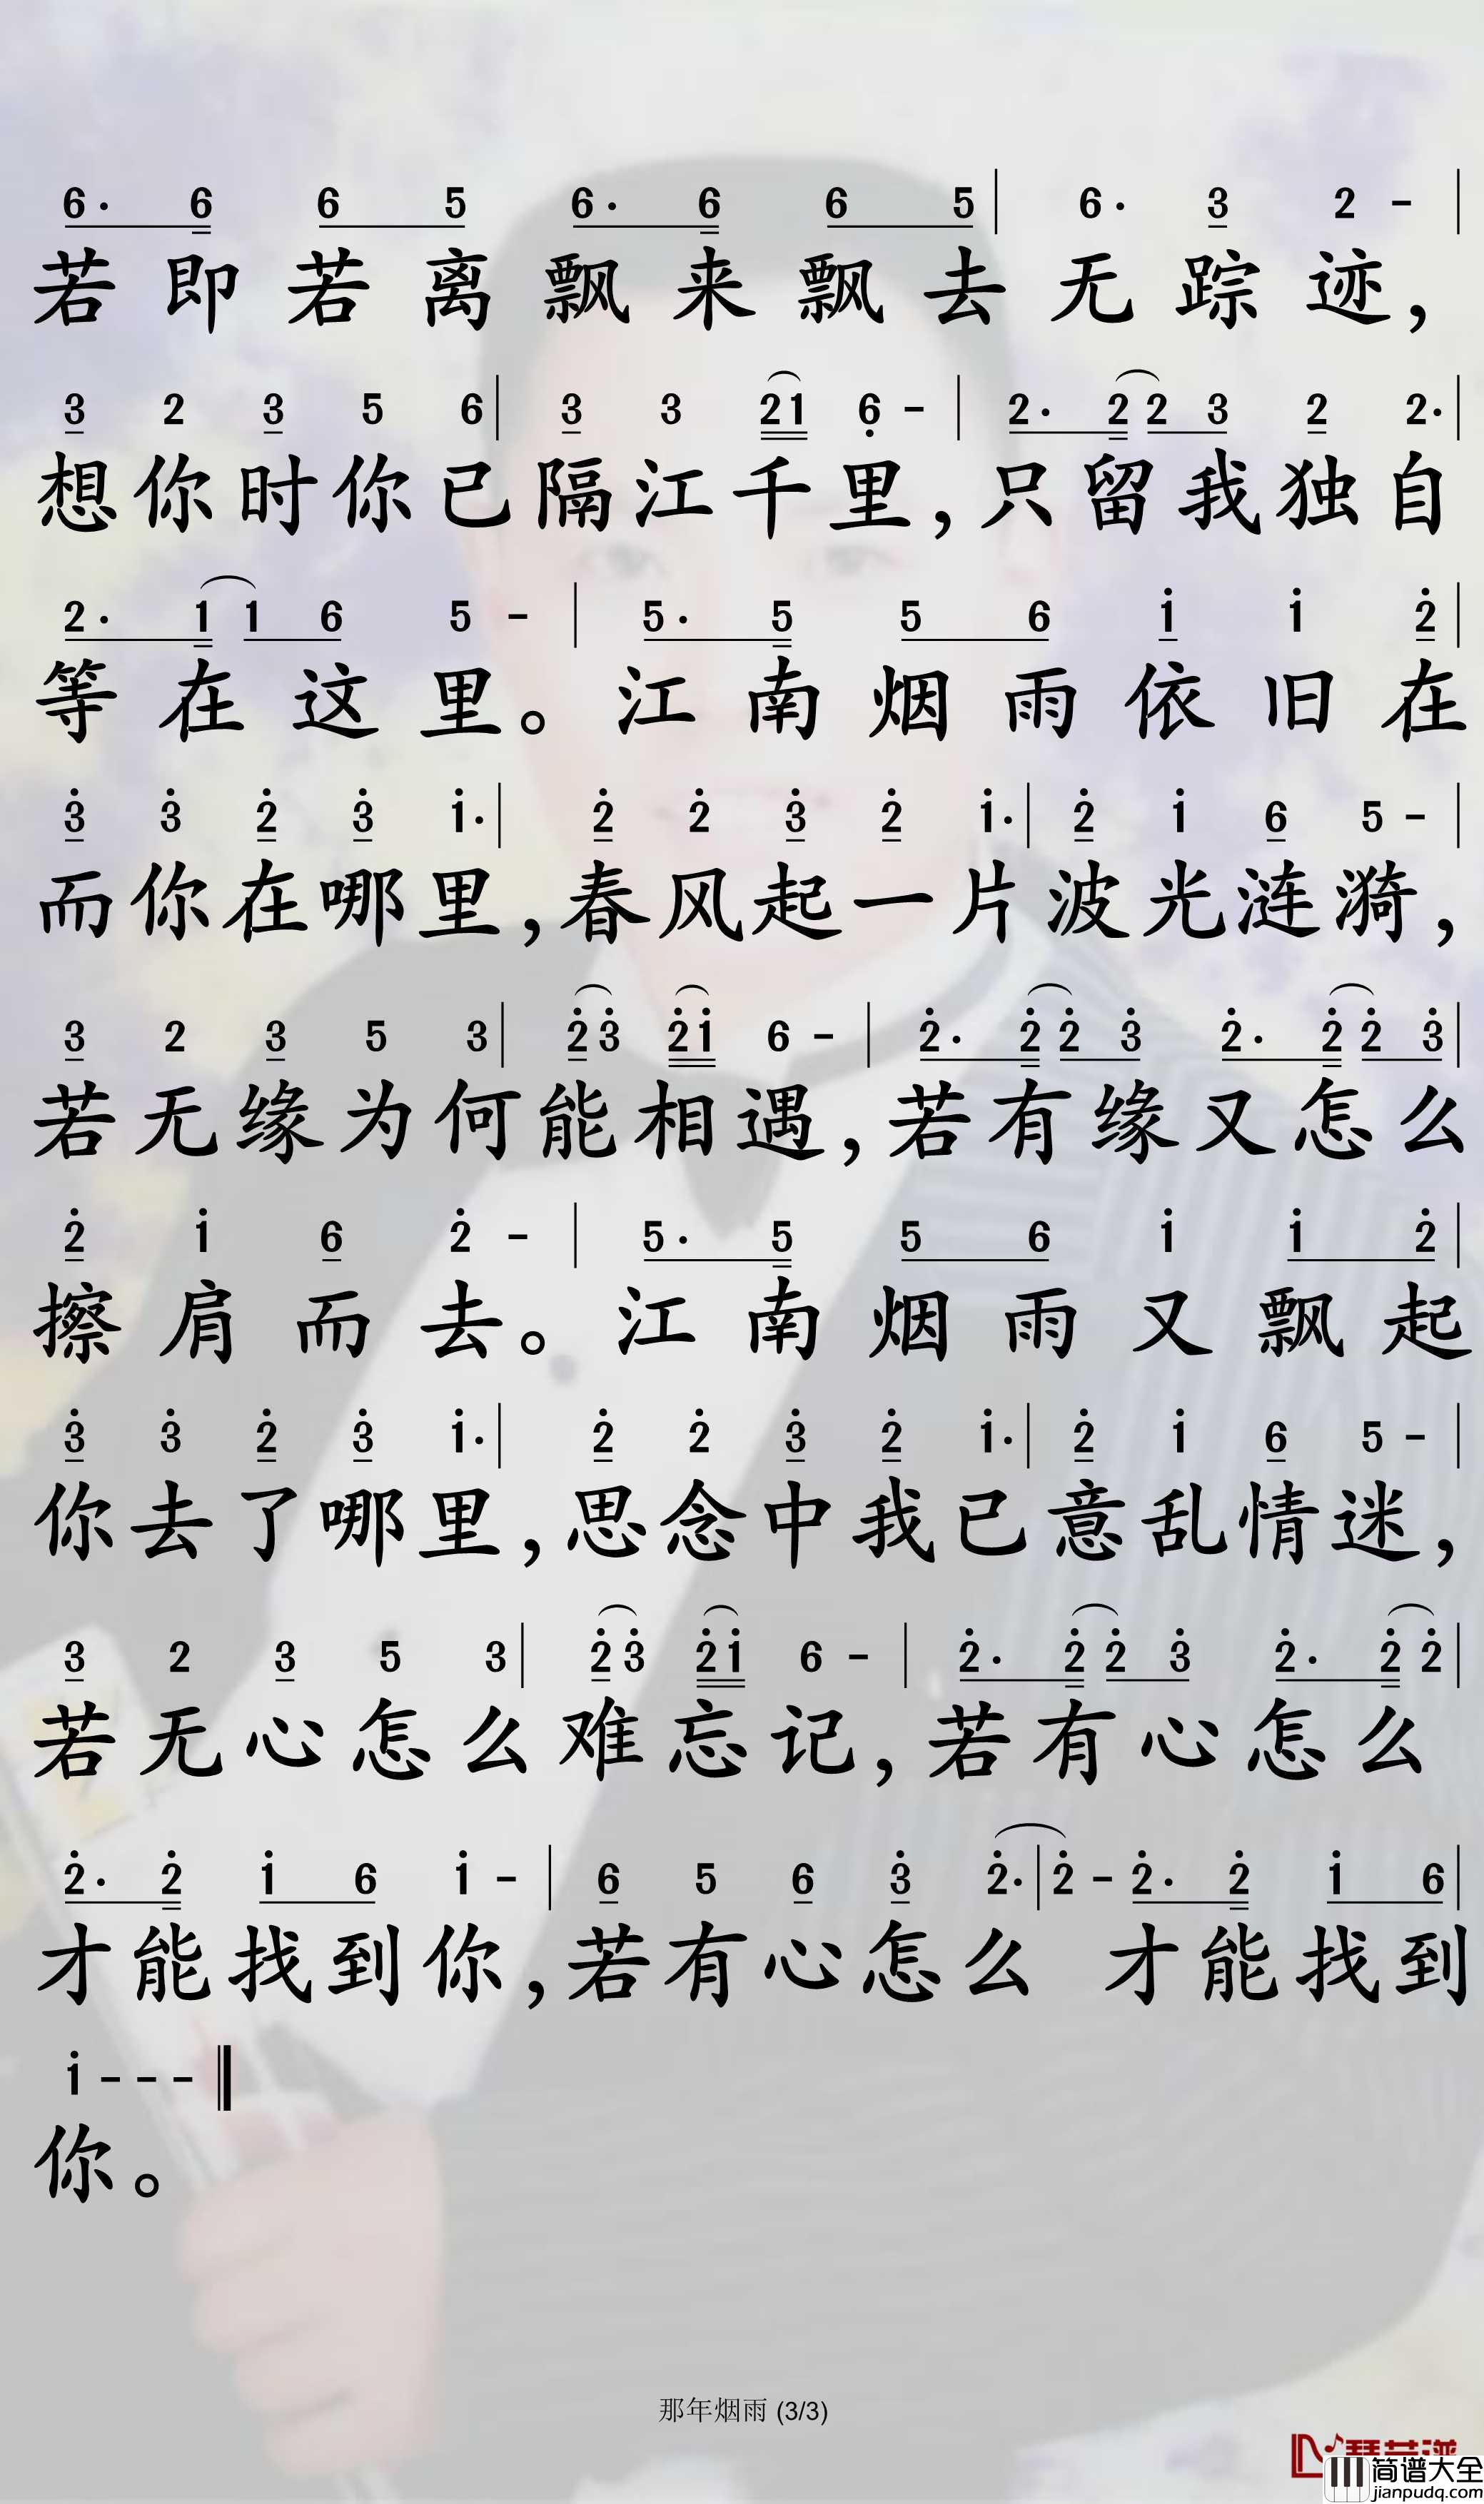 6· 6 6 5 6· 6 6 5 | 6· 3 2 - |
若即若离飘来飘去无踪迹，
3 2 3 5 6 | 3 3 21 6 - | 2· 2 2 3 2 2· |
想你时你已隔江千里，只留我独自
2· 1 1 6 5 - | 5· 5 5 6 i i 2 |
等在这里。江南烟雨依旧在
3 3 2 3 i· | 2 2 3 2 i· | 2 i 6 5 - |
而你在哪里，春风起一片波光涟漪，
3 2 3 5 3 | 2 3 2 i 6 - | 2· 2 2 3 2· 2 2 3 |
若无缘为何能相遇，若有缘又怎么
2 i 6 2 - | 5· 5 5 6 i i 2 |
擦肩而去。江南烟雨又飘起
3 3 2 3 i· | 2 2 3 2 i· | 2 i 6 5 - |
你去了哪里，思念中我已意乱情迷，
3 2 3 5 3 | 2 3 2 i 6 - | 2· 2 2 3 2· 2 2 |
若无心怎么难忘记，若有心怎么
2· 2 i 6 i - | 6 5 6 3 2· | 2 - 2· 2 i 6 |
才能找到你，若有心怎么 才能找到
i - - - ‖
你。
那年烟雨 (3/3)
简谱大全
jianpudq.com